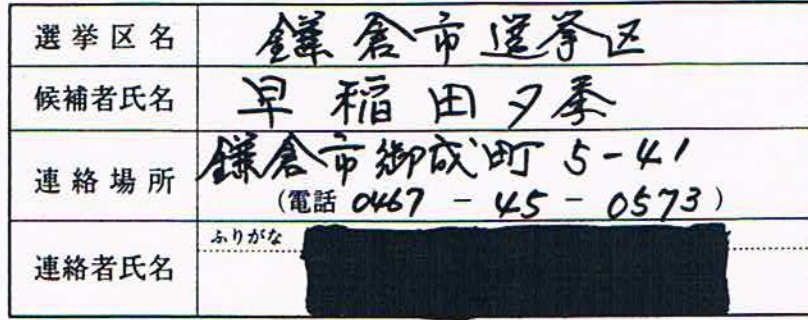 選挙区名 鎌倉市選挙区
候補者氏名 早稲田夕季
連絡場所 鎌倉市御成町 5-41
(電話 0467 - 45 - 0573)
ふりがな
連絡者氏名